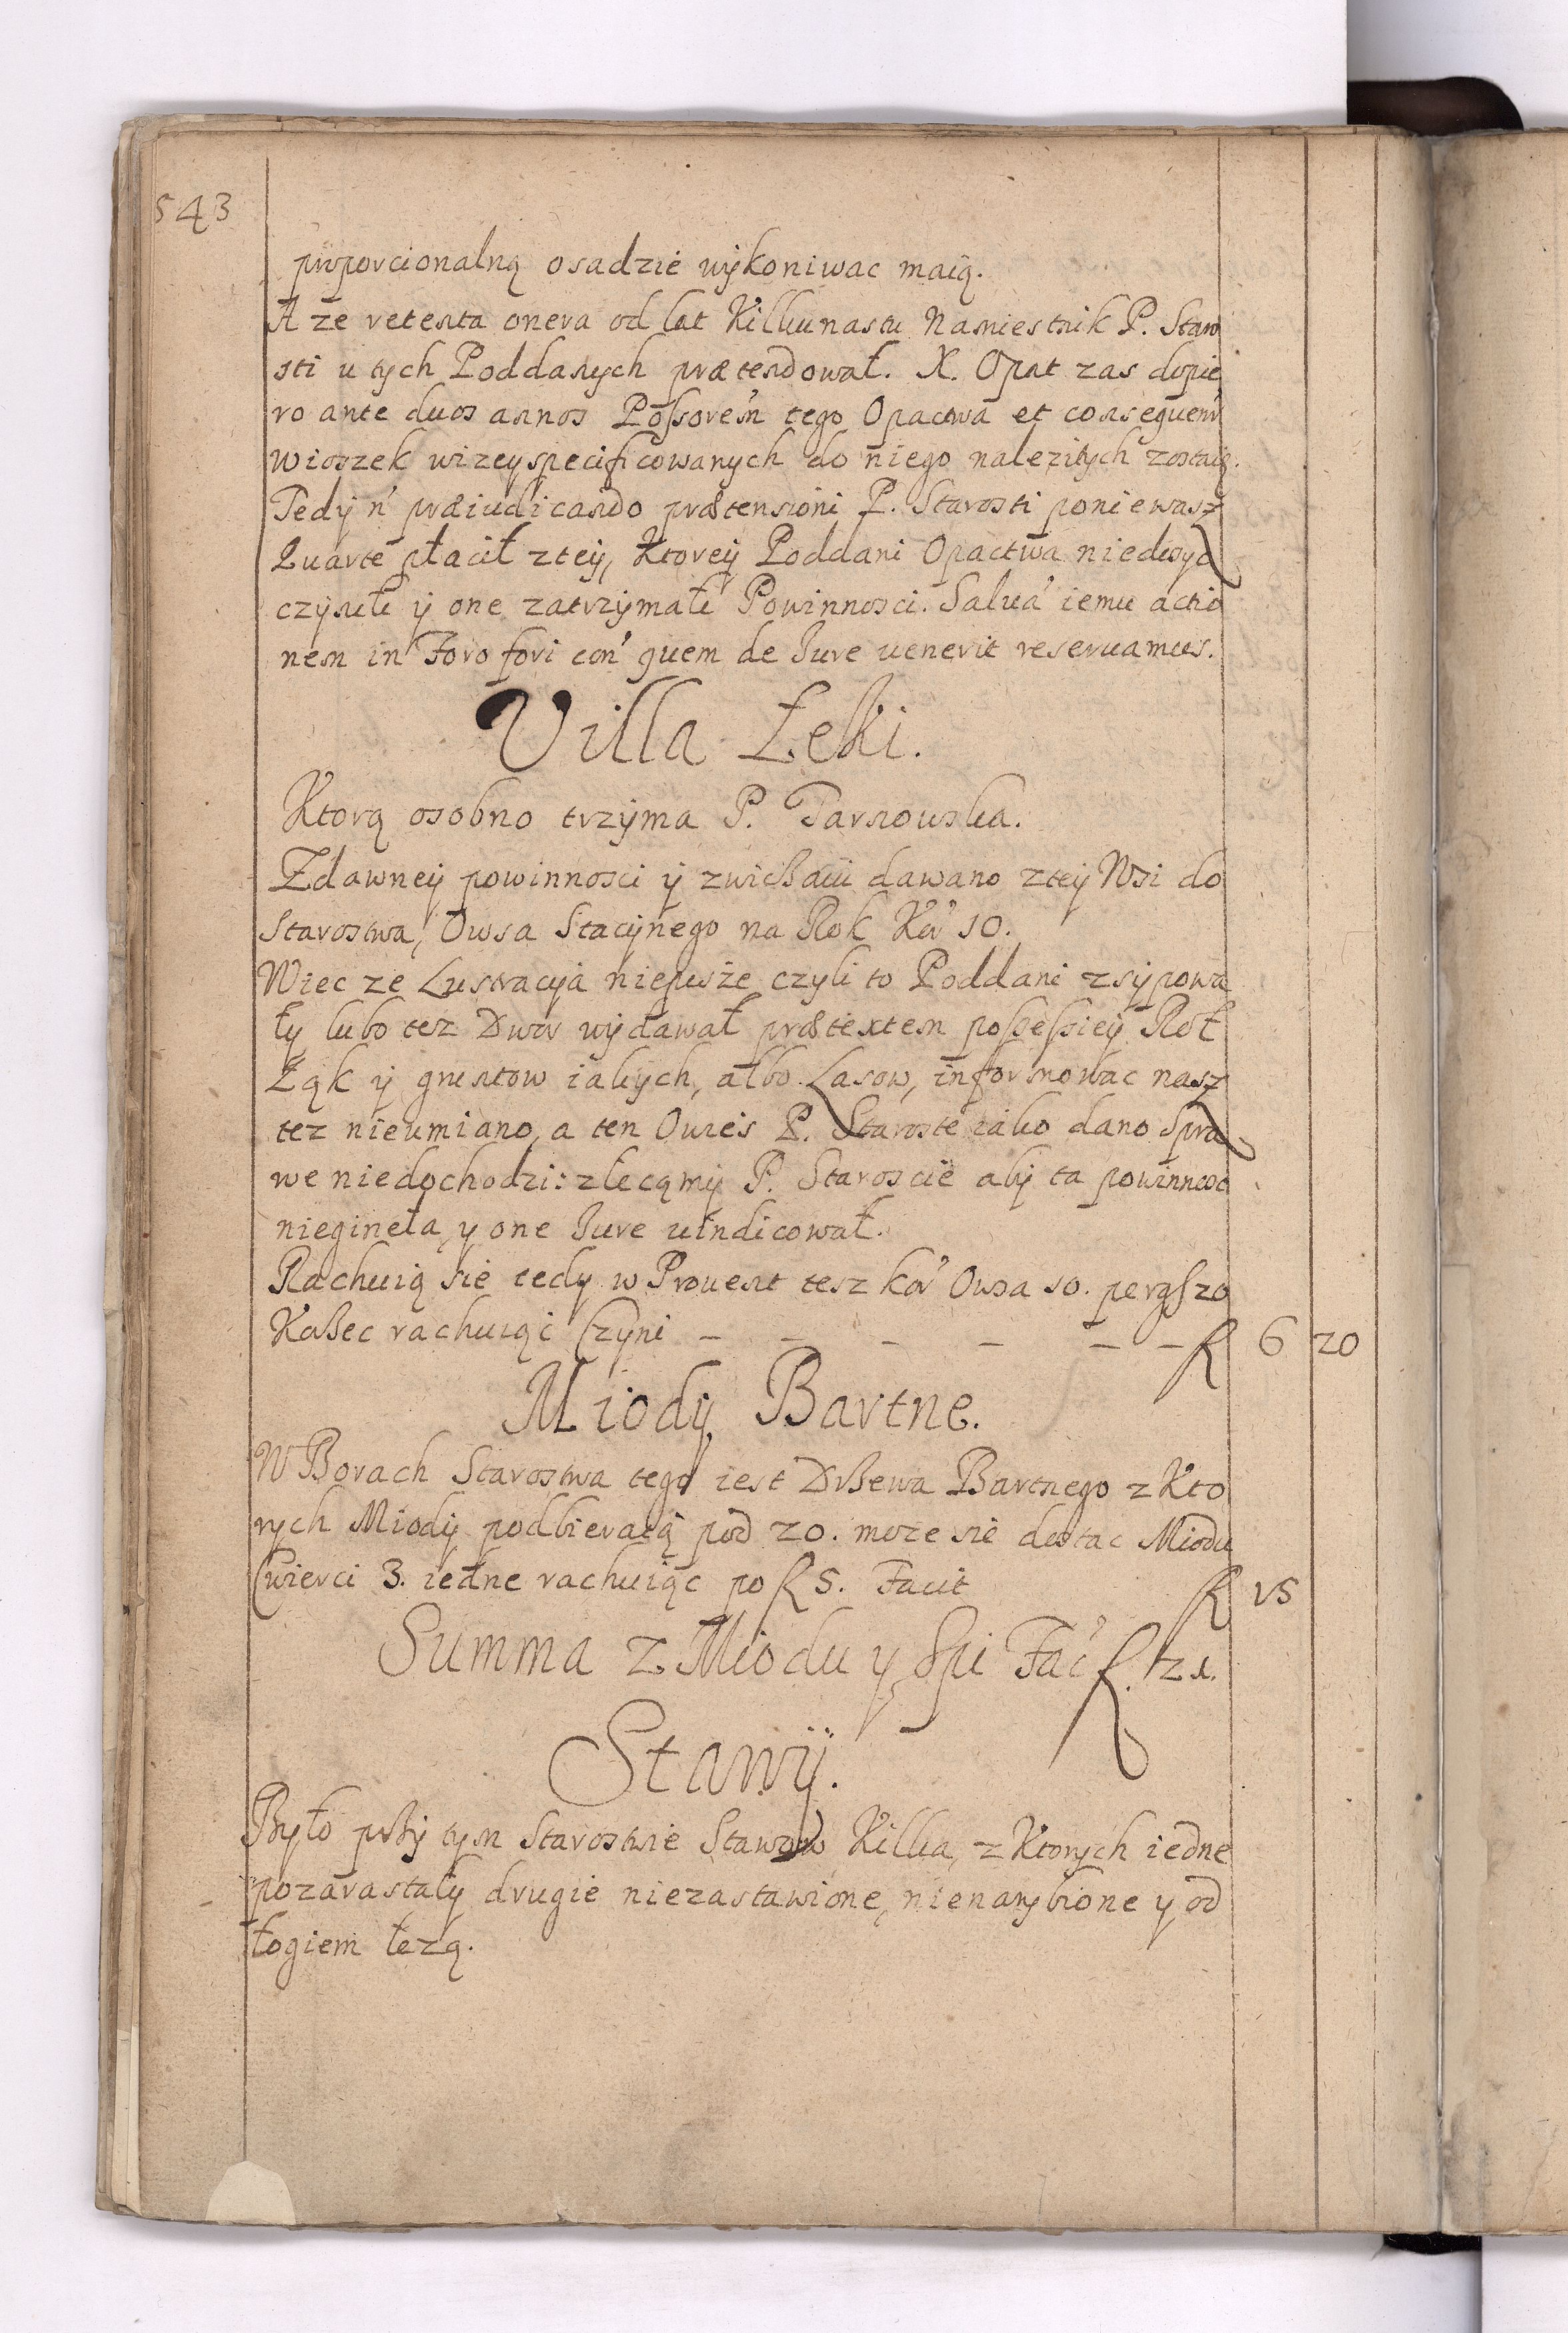 543
proporcionalną osadzie wykoniwac maią.
A ze retenta onera od lat Kilkunastu Namiestnik P. Staro
sti u tych Poddanych prætendował. X. Opat zas dopie
ro ante duos annos Poſsorem tego Opactwa et consequenr
wioszek wizey specificowanych do niego nalezitych zostaię.
Tedÿ n' præiudicando prætensioni P. Starosti poniewasz
Quarte płacił z teÿ, Ktoreÿ Poddani Opactwa niedosyc
czynili ÿ one zatrzÿmali Powinnosci. Salua' iemu actio
nem in Foro fori con' quem de Jure uenerit reseruamus.
Villa Łeki.
Ktorą osobno trzÿma P. Tarnowska.
Zdawneÿ powinnosci ÿ zwicßaiu dawano z teÿ Wsi do
Starostwa, Owsa Stacÿnego na Rok Kor' 10.
Wiec ze Lustracÿa niepisze czyli to Poddani zsÿpowa
łÿ lubo tez Dwor wÿdawał prætextem poſseſsieÿ Rol
Ląk ÿ gruntow iakych, albo Lasow, informowac nasz
tez nieumiano, a ten Owies P. Staroste iako dano Spra
we niedochodzi: zlecąmÿ P. Staroscie abÿ ta powinnosc
niegineła, y one Jure uindicował.
Rachuią sie tedy w Prouent tesz kor' Owsa 10. per gſ 20
Koßec rachuiąc Czÿni – – – – – – ƒ 6 20
Miodÿ Bartne.
W Borach Starostwa tego iest Drßewa Bartnego z Kto
rych Miodÿ podbieraią pod 20. moze sie dostac Miodu
Cwierci 3. iedne rachuiąc po ƒ 5. Facit ƒ 15
Summa z Miodu y Spi Fac' ƒ. 21.
Stawÿ.
Było prßÿ tym Starostwie Stawow Kilka, z Ktorych iedne
pozarastały drugie niezastawione, nienarybione y od
łogiem lezą.